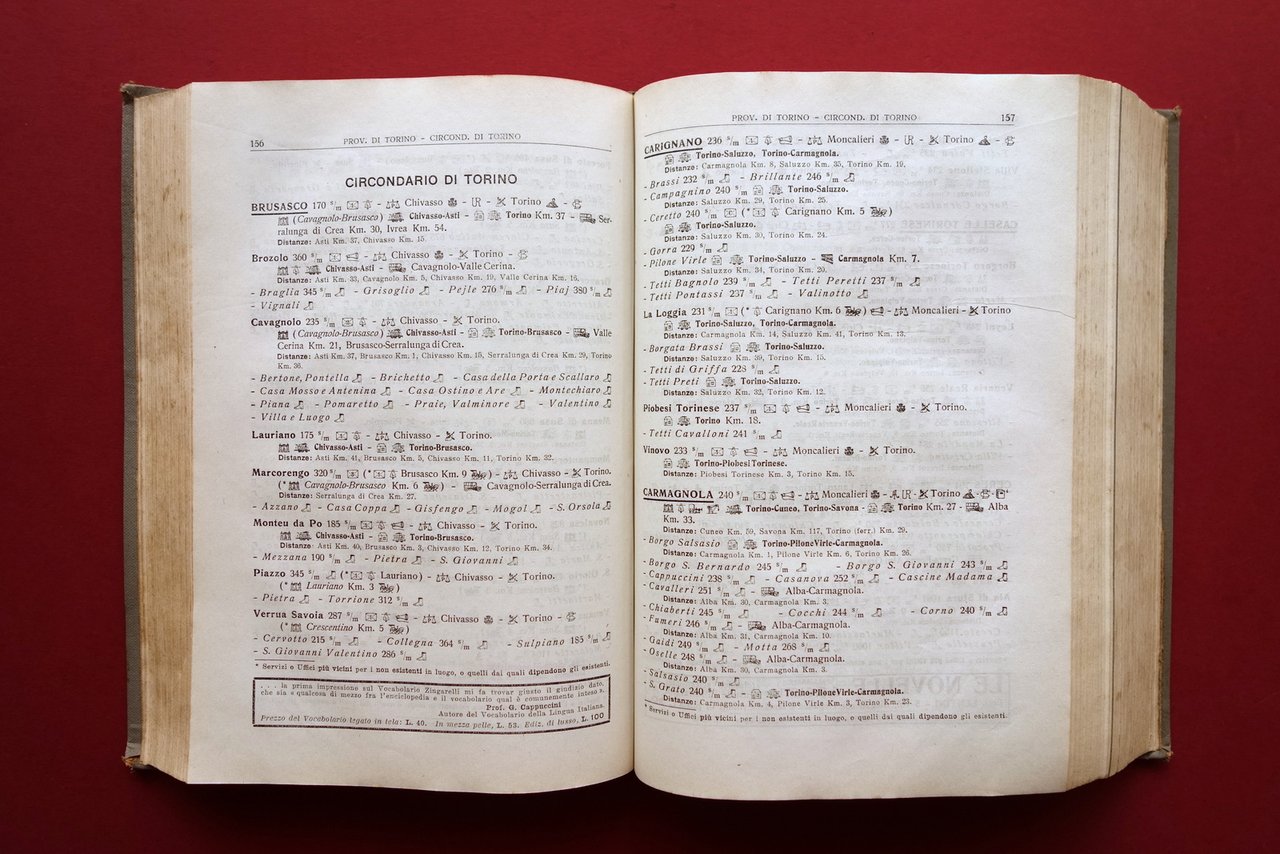 156
PROV. DI TORINO - CIRCOND. DI TORINO
CIRCONDARIO DI TORINO
BRUSASCO 170 s/m - Chivasso - LR - Torino -
(Cavagnolo-Brusasco) Chivasso-Asti - Torino Km. 37 - Ser-
ralunga di Crea Km. 30, Ivrea Km. 54.
Distanze: Asti Km. 37, Chivasso Km. 15.
Brozolo 360 s/m - Chivasso - Torino -
Chivasso-Asti - Cavagnolo-Valle Cerina.
Distanze: Asti Km. 33, Cavagnolo Km. 5, Chivasso Km. 19, Valle Cerina Km. 16.
- Braglia 345 s/m - Grisoglio - Pejle 276 s/m - Piaj 380 s/m
- Vignali
Cavagnolo 235 s/m - Chivasso - Torino.
(Cavagnolo-Brusasco) Chivasso-Asti - Torino-Brusasco - Valle
Cerina Km. 21, Brusasco-Serralunga di Crea.
Distanze: Asti Km. 37, Brusasco Km. 1, Chivasso Km. 15, Serralunga di Crea Km. 29, Torino
Km. 36.
- Bertone, Pontella - Brichetto - Casa della Porta e Scallaro
- Casa Mosso e Antenina - Casa Ostino e Are - Montechiaro
- Piana - Pomaretto - Praie, Valminore - Valentino
- Villa e Luogo
Lauriano 175 s/m - Chivasso - Torino.
Chivasso-Asti - Torino-Brusasco.
Distanze: Asti Km. 41, Brusasco Km. 5, Chivasso Km. 11, Torino Km. 32.
Marcorengo 320 s/m (* Brusasco Km. 9) - Chivasso - Torino.
(* Cavagnolo-Brusasco Km. 6) - Cavagnolo-Serralunga di Crea.
Distanze: Serralunga di Crea Km. 27.
- Azzano - Casa Coppa - Gisfengo - Mogol - S. Orsola
Monteu da Po 185 s/m - Chivasso - Torino.
Chivasso-Asti - Torino-Brusasco.
Distanze: Asti Km. 40, Brusasco Km. 3, Chivasso Km. 12, Torino Km. 34.
- Mezzana 190 s/m - Pietra - S. Giovanni
Piazzo 345 s/m (* Lauriano) - Chivasso - Torino.
(* Lauriano Km. 3)
- Pietra - Torrione 312 s/m
Verrua Savoia 287 s/m - Chivasso - Torino -
(* Crescentino Km. 5)
- Cervotto 215 s/m - Collegna 364 s/m - Sulpiano 185 s/m
- S. Giovanni Valentino 286 s/m
* Servizi o Uffici più vicini per i non esistenti in luogo, o quelli dai quali dipendono gli esistenti.
. . . la prima impressione sul Vocabolario Zingarelli mi fa trovar giusto il giudizio dato,
che sia « qualcosa di mezzo fra l'enciclopedia e il vocabolario qual è comunemente inteso ».
Prof. G. Cappuccini
Autore del Vocabolario della Lingua Italiana.
Prezzo del Vocabolario legato in tela: L. 40. In mezza pelle, L. 53. Ediz. di lusso, L. 100
PROV. DI TORINO - CIRCOND. DI TORINO
157
CARIGNANO 236 s/m - Moncalieri - LR - Torino -
Torino-Saluzzo, Torino-Carmagnola.
Distanze: Carmagnola Km. 8, Saluzzo Km. 35, Torino Km. 19.
- Brassi 232 s/m - Brillante 246 s/m
- Campagnino 240 s/m Torino-Saluzzo.
Distanze: Saluzzo Km. 29, Torino Km. 25.
- Ceretto 240 s/m (* Carignano Km. 5)
Torino-Saluzzo.
Distanze: Saluzzo Km. 30, Torino Km. 24.
- Gorra 229 s/m
- Pilone Virle Torino-Saluzzo - Carmagnola Km. 7.
Distanze: Saluzzo Km. 34, Torino Km. 20.
- Tetti Bagnolo 239 s/m - Tetti Peretti 237 s/m
- Tetti Pontassi 237 s/m - Valinotto
La Loggia 231 s/m (* Carignano Km. 6) - Moncalieri - Torino
Torino-Saluzzo, Torino-Carmagnola.
Distanze: Carmagnola Km. 14, Saluzzo Km. 41, Torino Km. 13.
- Borgata Brassi Torino-Saluzzo.
Distanze: Saluzzo Km. 39, Torino Km. 15.
- Tetti di Griffa 228 s/m
- Tetti Preti Torino-Saluzzo.
Distanze: Saluzzo Km. 32, Torino Km. 12.
Piobesi Torinese 237 s/m - Moncalieri - Torino.
Torino Km. 18.
- Tetti Cavalloni 241 s/m
Vinovo 233 s/m - Moncalieri - Torino.
Torino-Piobesi Torinese.
Distanze: Piobesi Torinese Km. 3, Torino Km. 15.
CARMAGNOLA 240 s/m - Moncalieri - LR - Torino -
Torino-Cuneo, Torino-Savona - Torino Km. 27 - Alba
Km. 33.
Distanze: Cuneo Km. 59, Savona Km. 117, Torino (ferr.) Km. 29.
- Borgo Salsasio Torino-Pilone Virle-Carmagnola.
Distanze: Carmagnola Km. 1, Pilone Virle Km. 6, Torino Km. 26.
- Borgo S. Bernardo 245 s/m - Borgo S. Giovanni 243 s/m
- Cappuccini 238 s/m - Casanova 252 s/m - Cascine Madama
- Cavalleri 251 s/m - Alba-Carmagnola.
Distanze: Alba Km. 30, Carmagnola Km. 3.
- Chiaberti 245 s/m - Cocchi 244 s/m - Corno 240 s/m
- Fumeri 246 s/m - Alba-Carmagnola.
Distanze: Alba Km. 31, Carmagnola Km. 10.
- Gaidi 249 s/m - Motta 268 s/m
- Oselle 248 s/m - Alba-Carmagnola.
Distanze: Alba Km. 30, Carmagnola Km. 3.
- Salsasio 240 s/m
- S. Grato 240 s/m - Torino-Pilone Virle-Carmagnola.
Distanze: Carmagnola Km. 4, Pilone Virle Km. 3, Torino Km. 23.
* Servizi o Uffici più vicini per i non esistenti in luogo, o quelli dai quali dipendono gli esistenti.